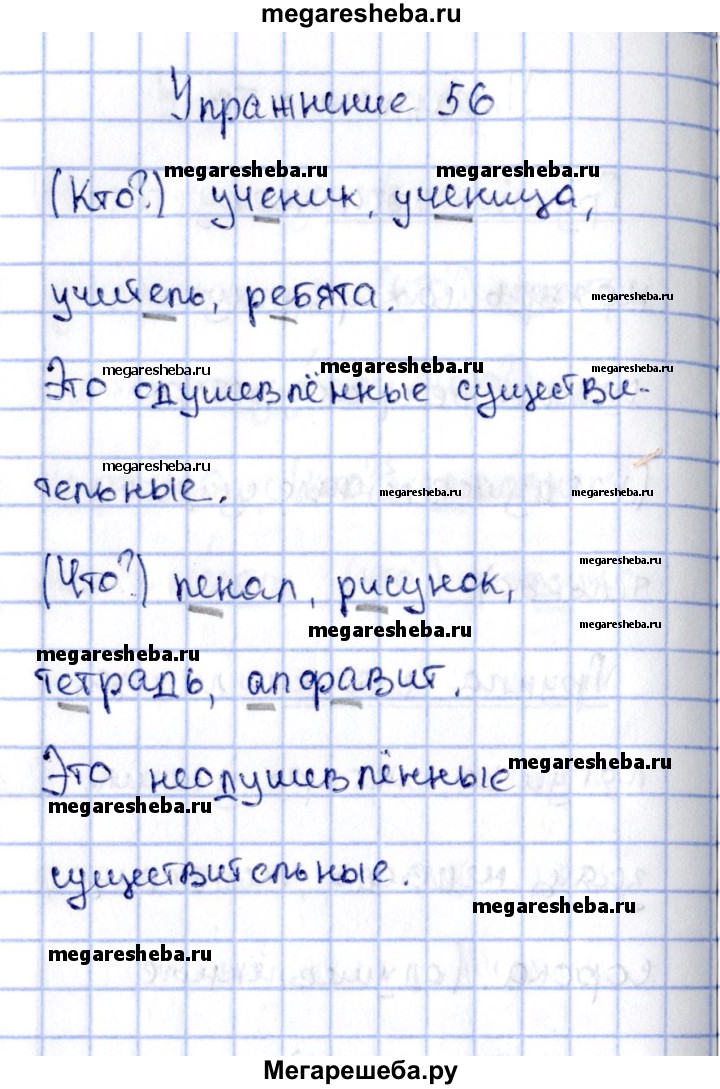 megaresheba.ru
Упражнение 56
megaresheba.ru megaresheba.ru
(Кто?) ученик, ученица,
учитель, ребята.
megaresheba.ru
megaresheba.ru megaresheba.ru megaresheba.ru
Это одушевлённые существи-
megaresheba.ru
тельные.
megaresheba.ru megaresheba.ru
megaresheba.ru
(Что?) пенал, рисунок,
megaresheba.ru megaresheba.ru
megaresheba.ru
тетрадь, алфавит.
Это неодушевлённые
megaresheba.ru
megaresheba.ru
существительные.
megaresheba.ru
megaresheba.ru
Мегарешеба.ру